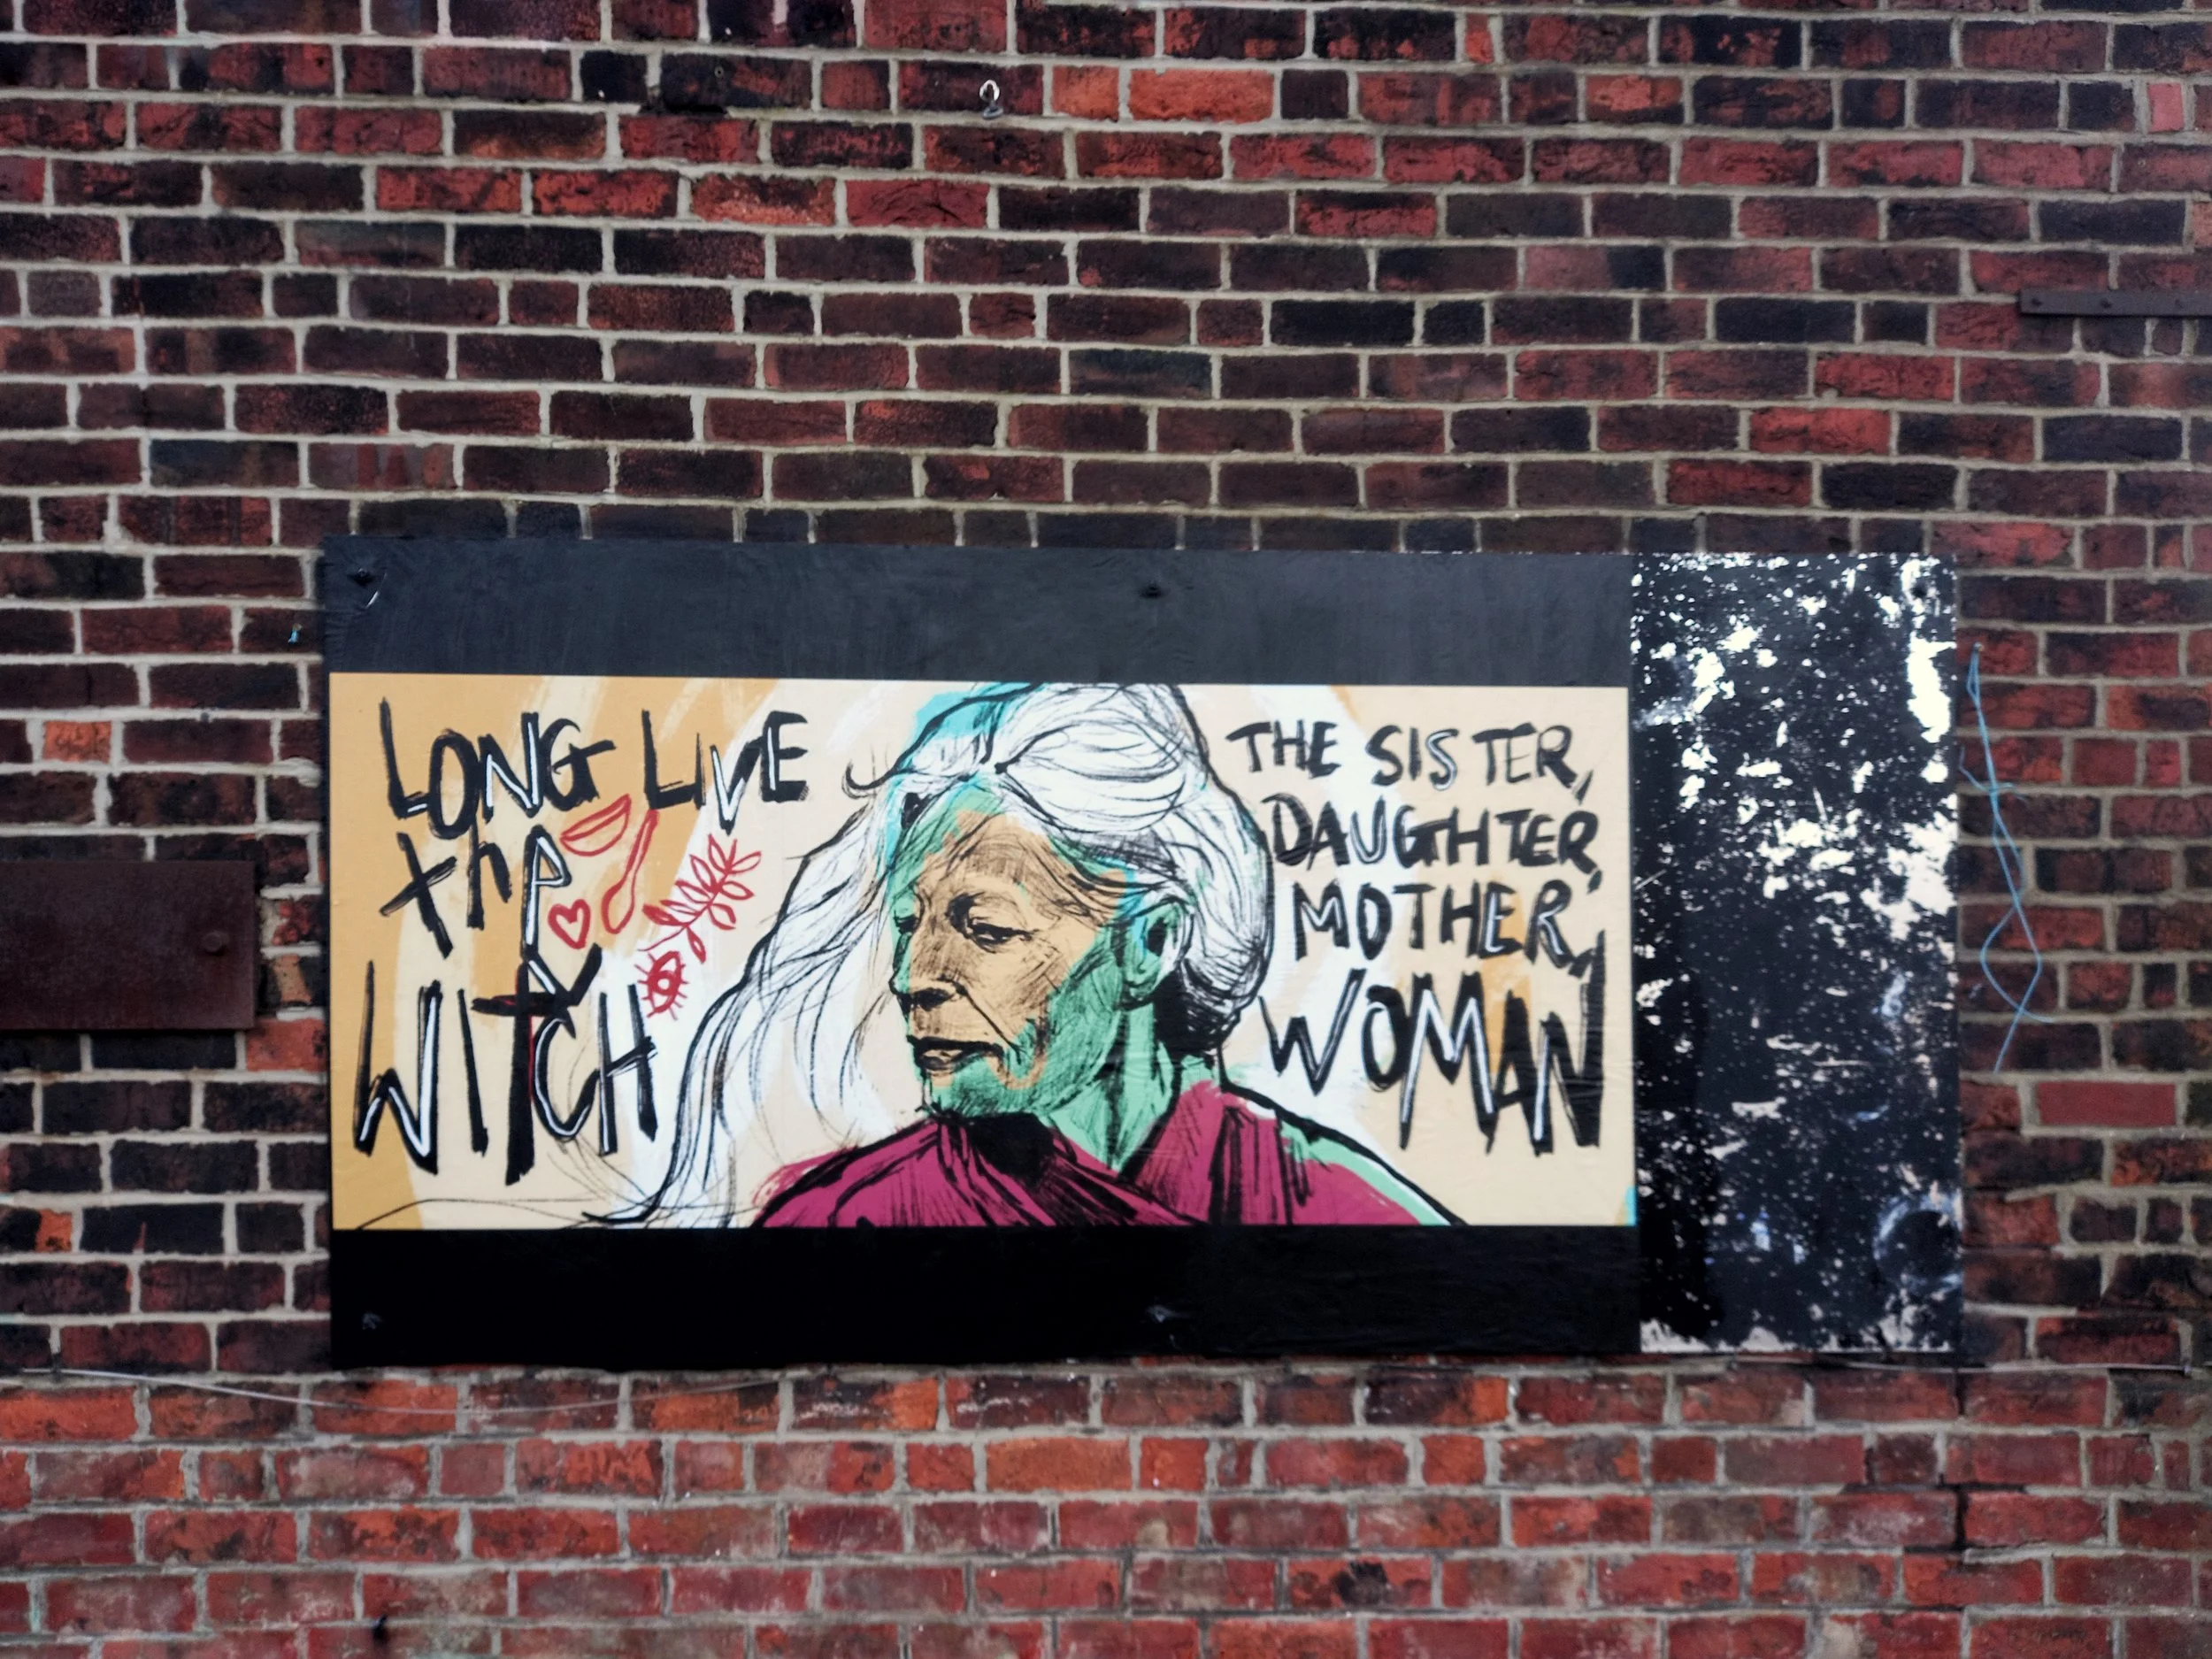 LONG LIVE
the
WITCH
THE SISTER,
DAUGHTER,
MOTHER,
WOMAN